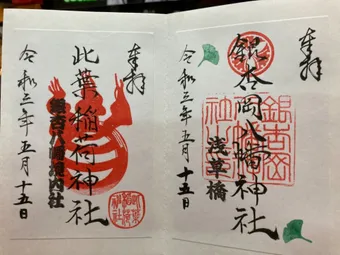 奉拝
銀杏岡八幡神社
浅草橋
令和三年五月十五日
奉拝
此葉稲荷神社
銀杏八幡境内社
令和三年五月十五日